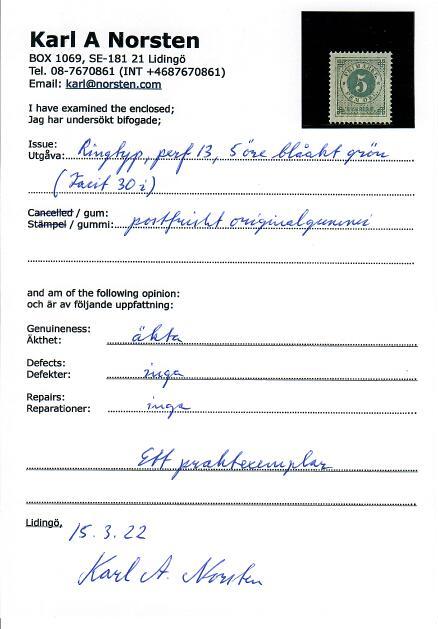 Karl A Norsten
BOX 1069, SE-181 21 Lidingö
Tel. 08-7670861 (INT +4687670861)
Email: karl@norsten.com
I have examined the enclosed;
Jag har undersökt bifogade;
Issue:
Utgåva: Ringtyp, perf 13, 5 öre blåakt grön
(Facit 30 i)
Cancelled / gum:
Stämpel / gummi: postfriskt originalgummi
and am of the following opinion:
och är av följande uppfattning:
Genuineness:
Äkthet: äkta
Defects:
Defekter: inga
Repairs:
Reparationer: inga
Ett praktexemplar
Lidingö, 15.3.22
Karl A. Norsten
5